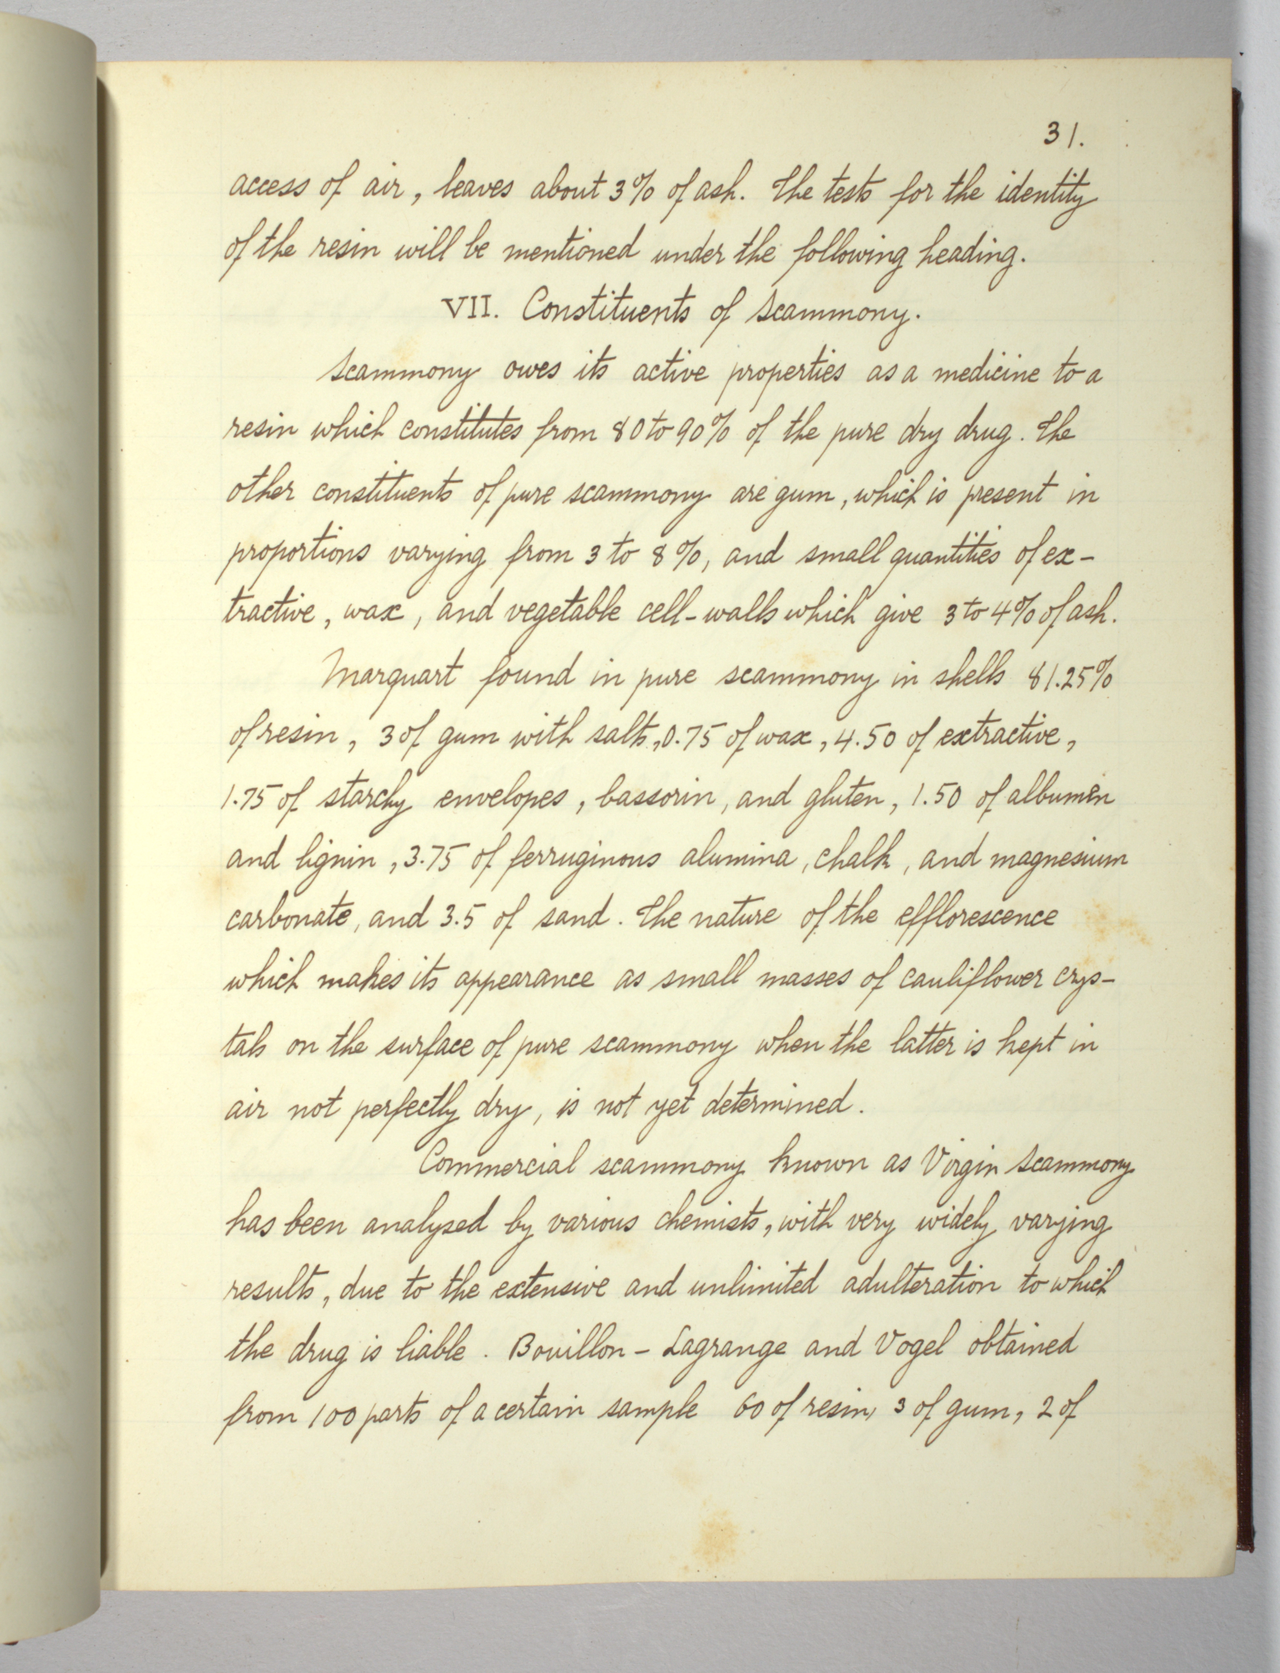 31.
access of air, leaves about 3% of ash. The tests for the identity
of the resin will be mentioned under the following heading.
VII. Constituents of Scammony.
Scammony owes its active properties as a medicine to a
resin which constitutes from 80 to 90% of the pure dry drug. The
other constituents of pure scammony are gum, which is present in
proportions varying from 3 to 8%, and small quantities of ex-
tractive, wax, and vegetable cell-walls which give 3 to 4% of ash.
Marquart found in pure scammony in shells 81.25%
of resin, 3 of gum with salts, 0.75 of wax, 4.50 of extractive,
1.75 of starchy envelopes, bassorin, and gluten, 1.50 of albumen
and lignin, 3.75 of ferruginous alumina, chalk, and magnesium
carbonate, and 3.5 of sand. The nature of the efflorescence
which makes its appearance as small masses of cauliflower crys-
tals on the surface of pure scammony when the latter is kept in
air not perfectly dry, is not yet determined.
Commercial scammony known as Virgin Scammony
has been analysed by various chemists, with very widely varying
results, due to the extensive and unlimited adulteration to which
the drug is liable. Bouillon-Lagrange and Vogel obtained
from 100 parts of a certain sample 60 of resin, 3 of gum, 2 of